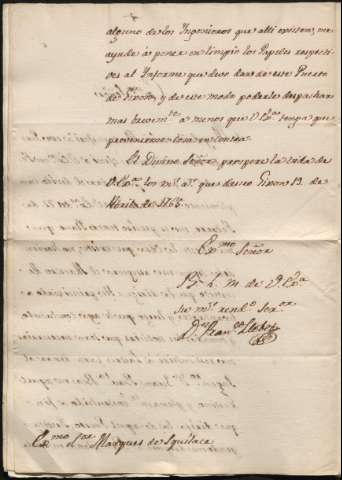 alguno de los Ingenieros que alli existen, me
ayude à poner en limpio los Papeles respecti-
vos al Informe que devo dar de este Puerto
de Gixon, y de este modo poderlo despachar
mas brevemte à menos que V. Exa tenga que
prevenirme cosa en contra.
El Divino Señor prospere la vida de
V. Exa los ms as que deseo Gixon 13 de
Abril de 1765.
Exmo Señor
B. L. M. de V. Exa
su mas rendo Seror
Exmo Sor Marques de Squilace